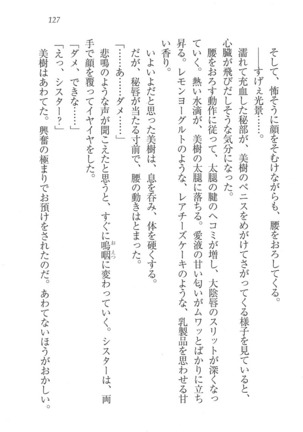 127
そして、怖そうに顔をそむけながらも、腰をおろしてくる。
──すげぇ光景──。
濡れて充血した秘部が、美樹のペニスをめがけてさがってくる様子を見ていると、
心臓が飛びだしそうな気分になった。
腰をおろす動作に従って、太腿の腱のヘコミが増し、大陰唇のスリットが深くなっ
ていく。熱い水滴が、美樹の太腿に落ちる。愛液の甘い匂いがムワッとばかりに立ち
昇る。レモンヨーグルトのような、レアチーズケーキのような、乳製品を思わせる甘
い香り。
いよいよだと思った美樹は、息を呑み、体を硬くする。
だが、秘唇が当たる寸前で、腰の動きはとまった。
「……あ……ダメ……」
悲鳴のような声が聞こえたと思うと、すぐに嗚咽に変わっていく。シスターは、両
手で顔を覆ってイヤイヤをした。
「ダメ、できな……」
「えっ、シスター?」
美樹はあわてた。興奮の極まりでお預けをされたのだ。あわてないほうがおかしい。